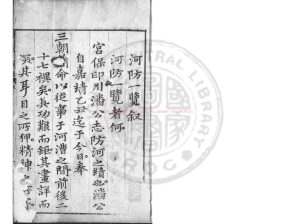 河防一覽敘
河防一覽者何
宮保印川潘公志防河之績也潘公
自嘉靖乙丑迄于今日奉
三朝命以從事于河漕之間前後二
十七禩矣其功艱而鉅其畫詳而
其耳目之所狎精神之所